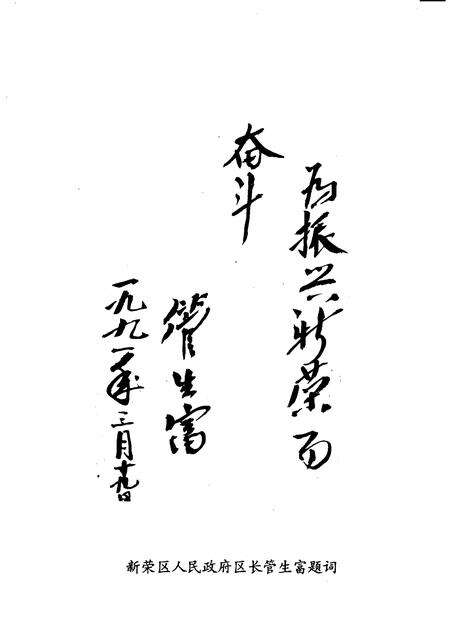 为振兴新荣而
奋斗
管生富
一九九一年三月十九日
新荣区人民政府区长管生富题词